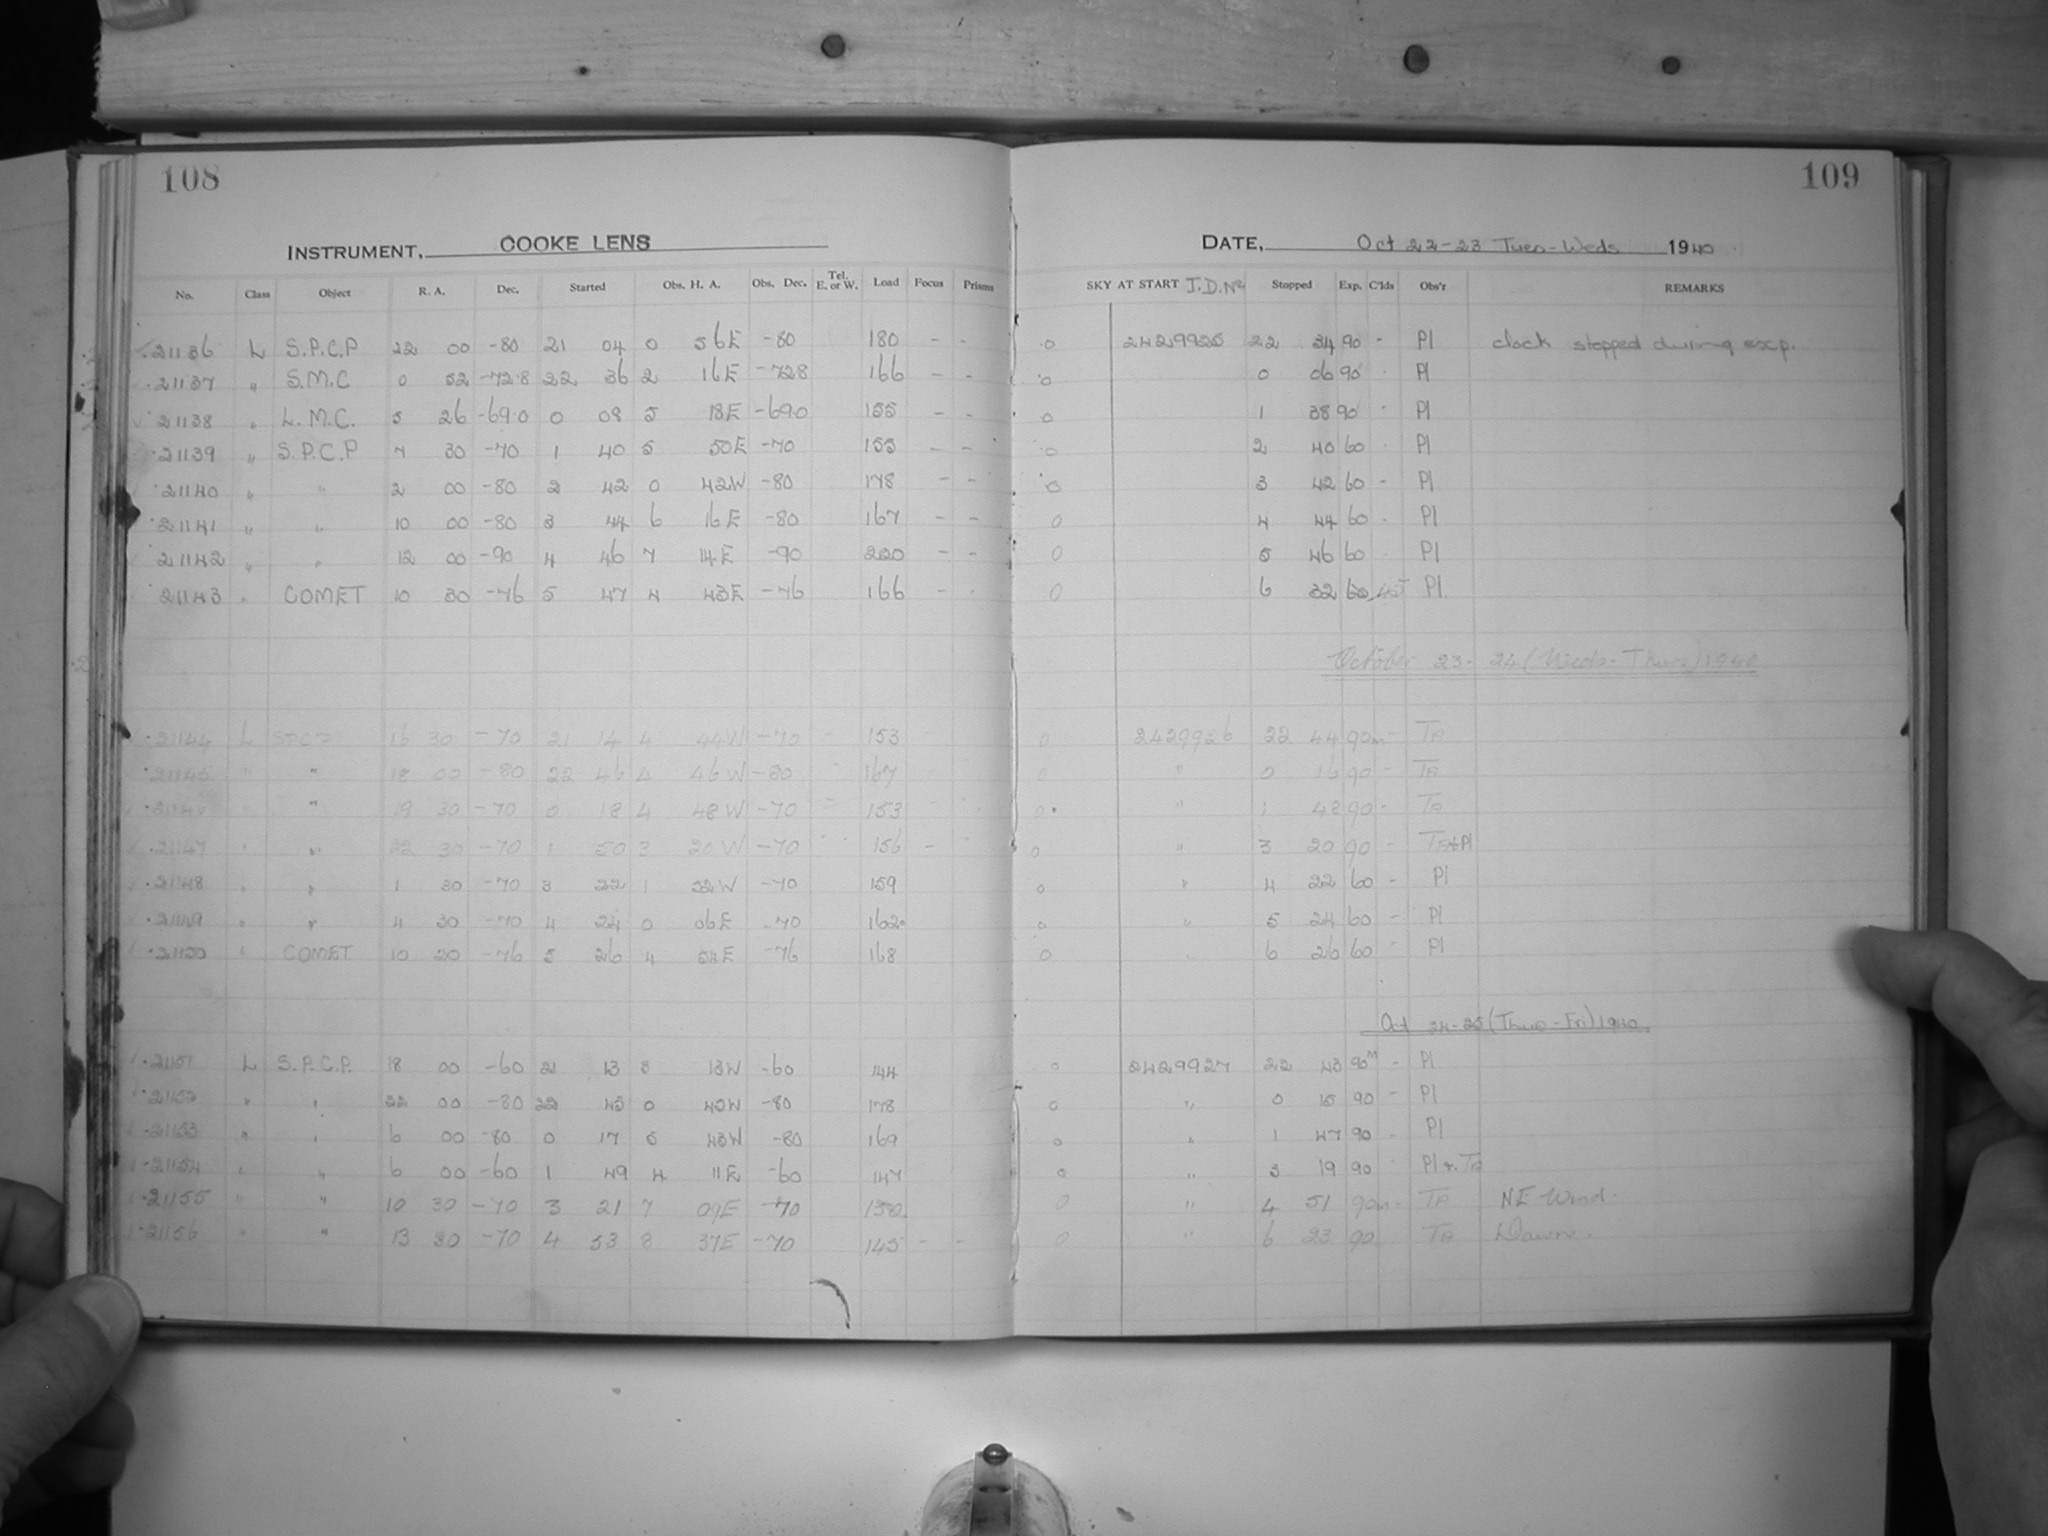 108
109
INSTRUMENT, COOKE LENS
DATE, Oct 22-23 Tues-Weds 1940
No. Class Object R. A. Dec. Started Obs. H. A. Obs. Dec. Tel. E. or W. Load Focus Prisms SKY AT START J.D. No Stopped Exp. C'lds Obs'r REMARKS
21136 L S.P.C.P 22 00 -80 21 04 0 56E -80 180 - - 0 2429925 22 34 90 - Pl clock stopped during exp.
21137 " S.M.C 0 52 -72.8 22 36 2 16E -728 166 - - 0 0 06 90 Pl
21138 " L.M.C. 5 26 -69.0 0 08 5 18E -690 155 - - 0 1 38 90 - Pl
21139 " S.P.C.P 7 30 -70 1 40 5 50E -70 155 - - 0 2 40 60 Pl
21140 " " 2 00 -80 2 42 0 42W -80 178 - - 0 3 42 60 - Pl
21141 " " 10 00 -80 3 44 6 16E -80 167 - - 0 4 44 60 - Pl
21142 " " 12 00 -90 4 46 7 14E -90 220 - - 0 5 46 60 Pl
21143 " COMET 10 30 -76 5 47 4 43E -76 166 - 0 6 32 60 45 Pl
October 23-24 (Weds-Thurs) 1940
21144 L SPCP 16 30 -70 21 14 4 44W -70 153 0 2429926 22 44 90m -
21145 " " 18 00 -80 22 46 4 46W -80 167 0 " 0 16 90 -
" " 19 30 -70 0 18 4 48W -70 153 0 " 1 48 90 -
21147 " " 22 30 -70 1 50 3 20W -70 156 - 0 " 3 20 90 -
21148 " " 1 30 -70 3 22 1 52W -70 159 0 " 4 22 60 - Pl
21149 " " 4 30 -70 4 24 0 06E -70 162 0 " 5 24 60 - Pl
21150 " COMET 10 30 -76 5 26 4 54E -76 168 0 " 6 26 60 - Pl
Oct 24-25 (Thurs-Fri) 1940
21151 L S.P.C.P. 18 00 -60 21 13 3 13W -60 144 0 2429927 22 43 90m - Pl
21152 " " 22 00 -80 22 45 0 45W -80 178 0 " 0 15 90 - Pl
21153 " " 6 00 -80 0 17 5 43W -80 169 0 " 1 47 90 - Pl
21154 " " 6 00 -60 1 49 4 11E -60 147 0 " 3 19 90 Pl +
21155 " " 10 30 -70 3 21 7 09E -70 150 0 " 4 51 90m - NE Wind.
21156 " " 13 30 -70 4 53 8 37E -70 145 - - 0 " 6 23 90 Dawn.